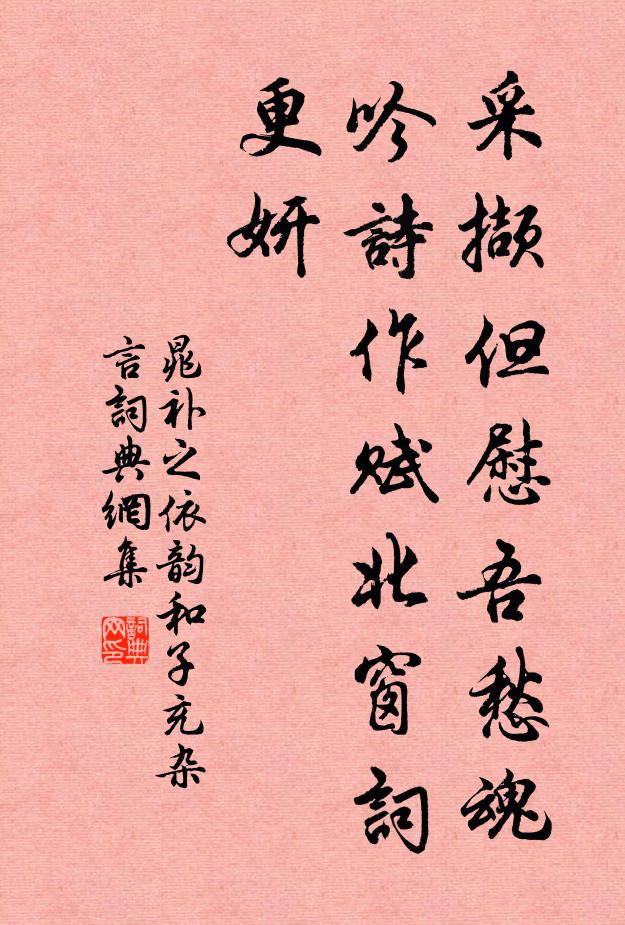 采擷但慰吾愁魂
吟詩作賦北窗詞
更妍
晁补之依韵和子充杂
言詞典網集
詞典
网印